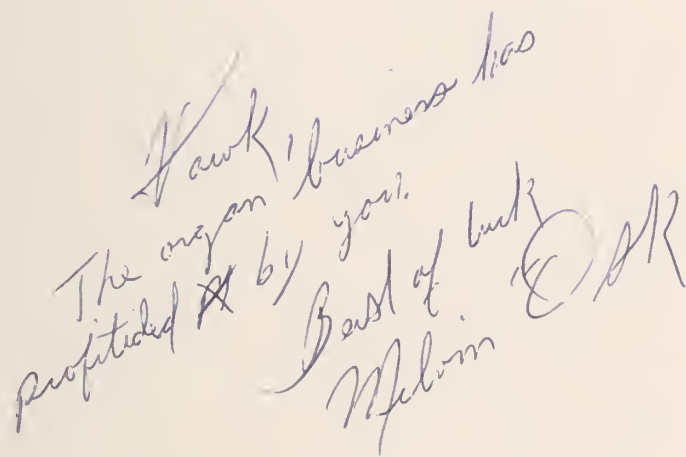 Hawk,
The organ business has
profitided by you.
Best of luck
Melvin